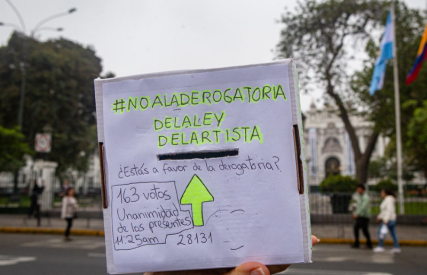 #NOALADEROGATORIA
DELALEY
DELARTISTA
¿Estás a favor de la derogatria?
163 votos
Unanimidad
de los presentes
11:25am
28131